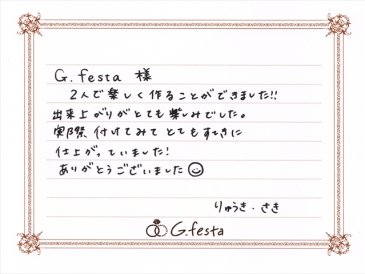 G.festa 様
2人で楽しく作ることができました!!
出来上がりがとても楽しみでした。
実際付けてみてとてもすてきに
仕上がっていました!
ありがとうございました☺
りゅうき・さき
G.festa